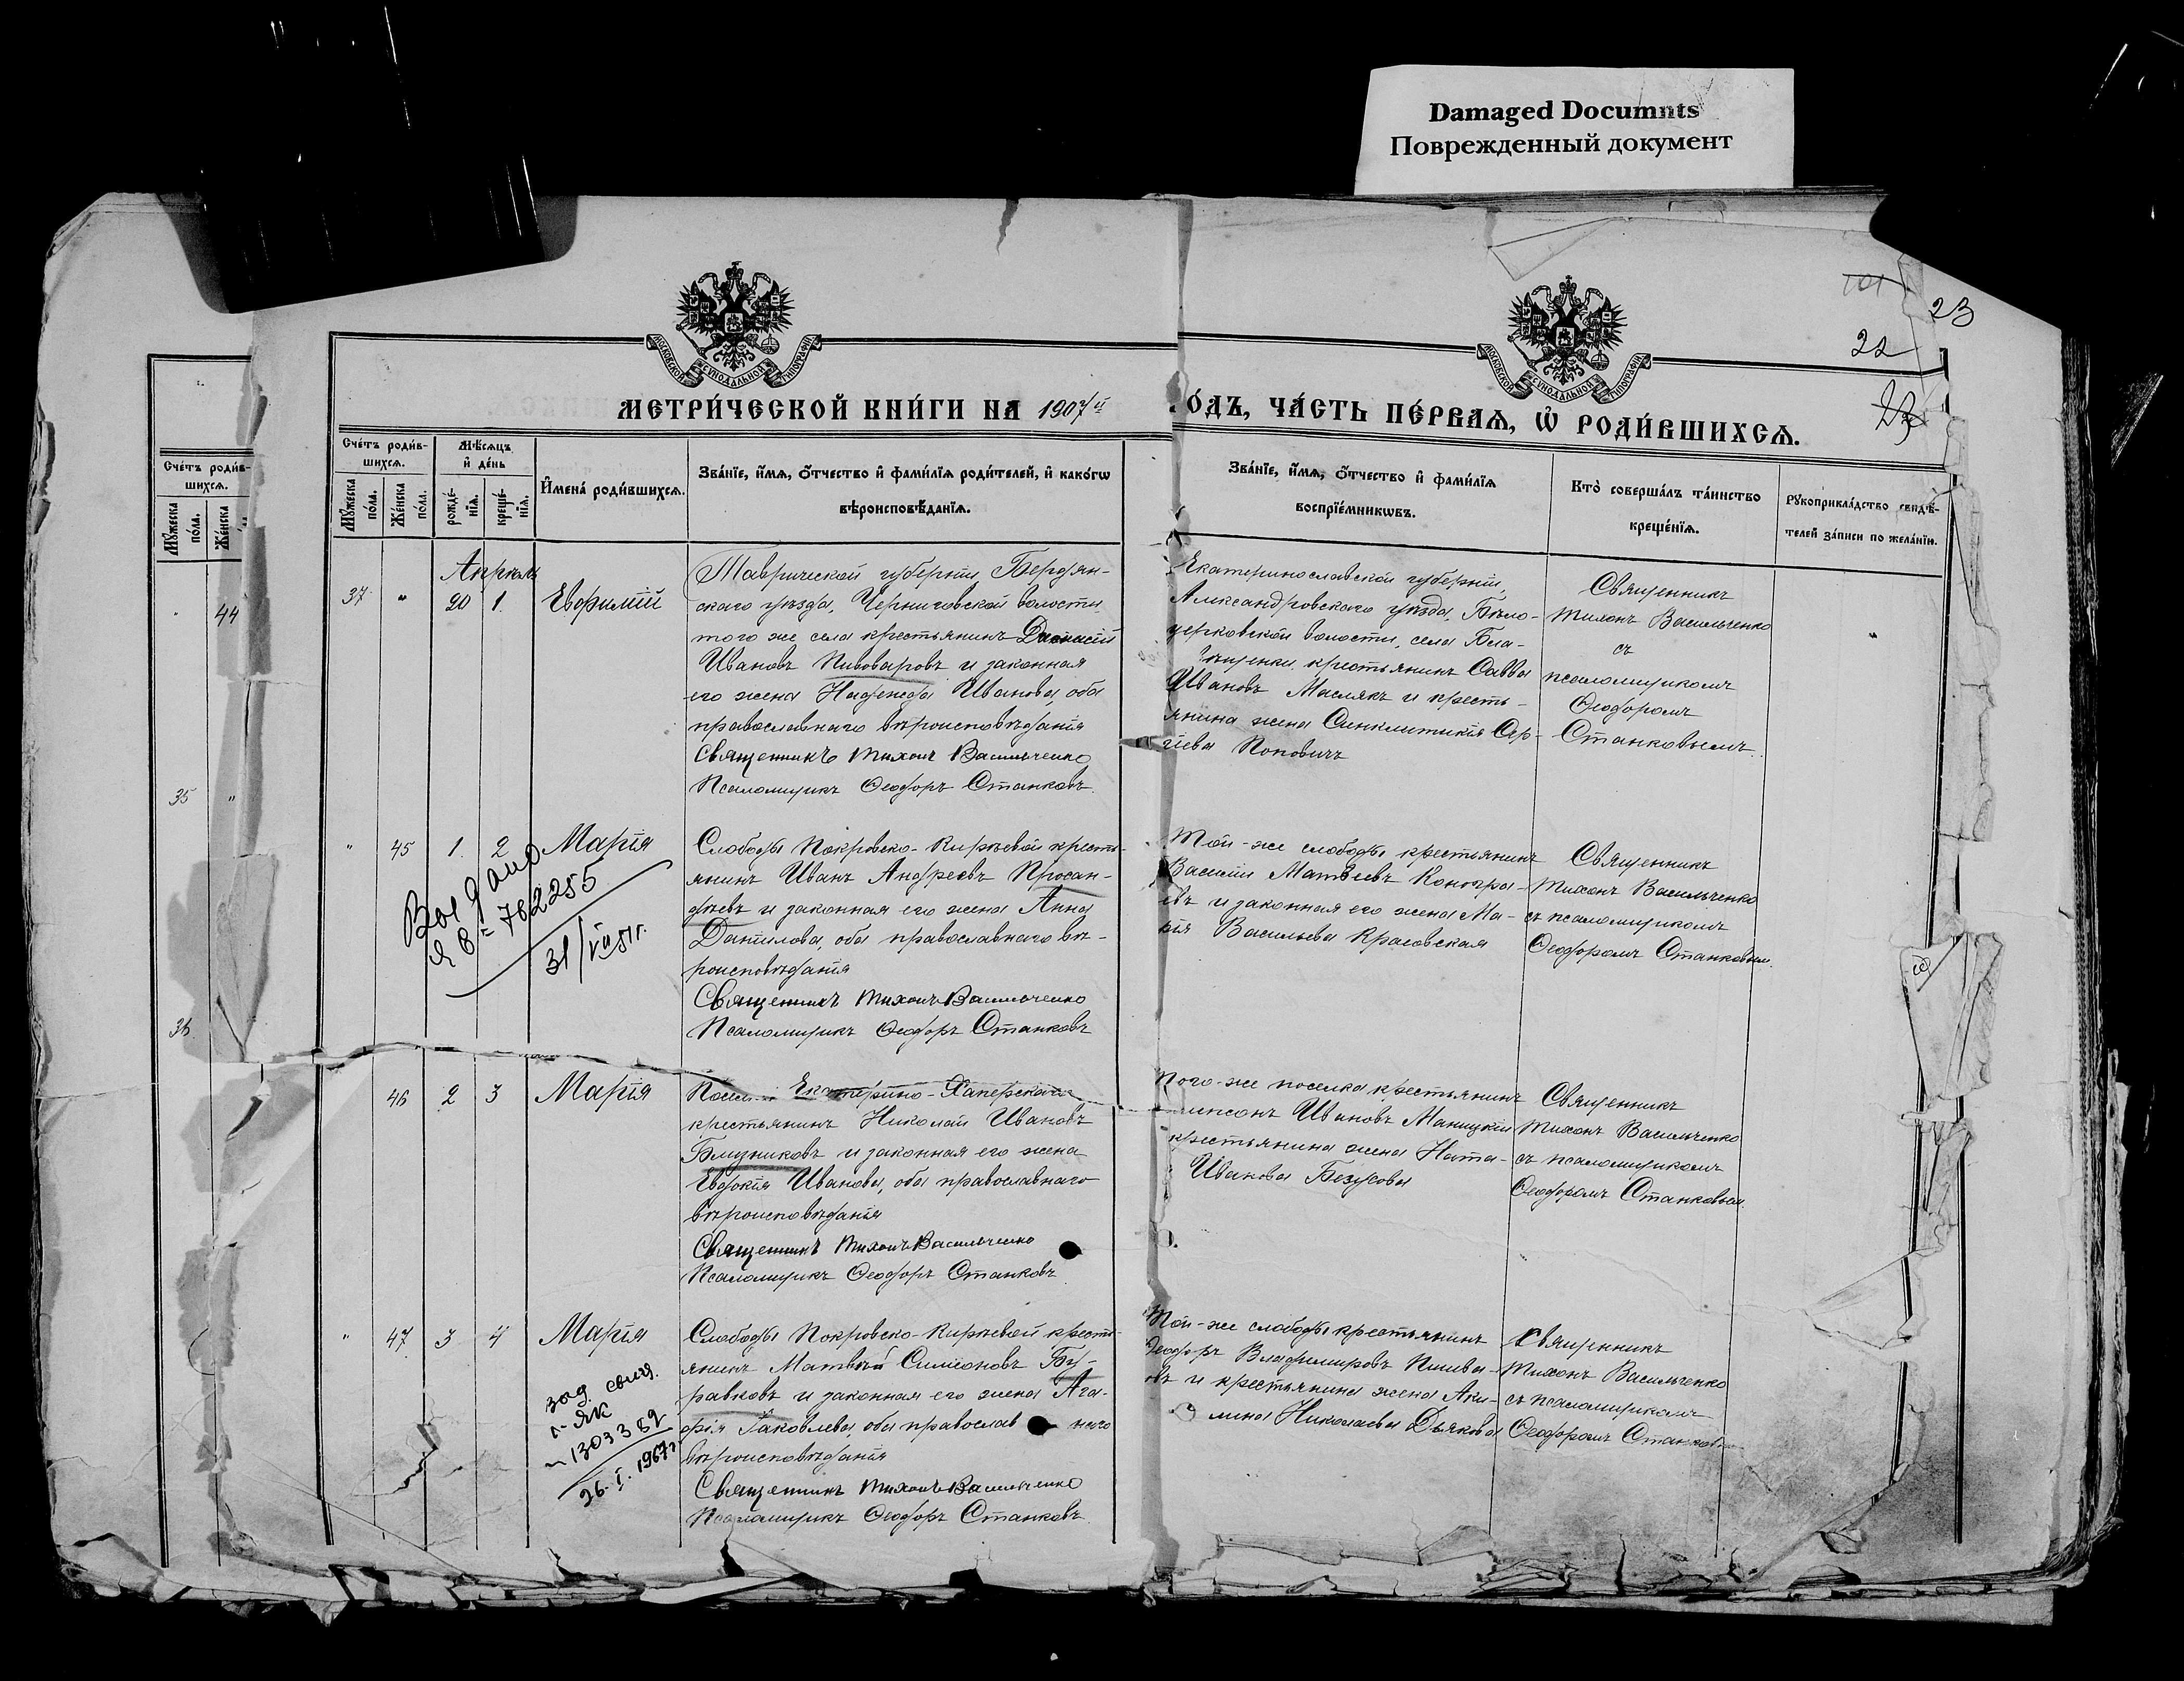 Damaged Documnts
Поврежденный документ
23
22
МОСКОВСКОЙ СѴНОДАЛЬНОЙ ТИПОГРАФІИ
МОСКОВСКОЙ СѴНОДАЛЬНОЙ ТИПОГРАФІИ
МЕТРИ́ЧЕСКОЙ КНИ́ГИ НА 1907й
О́ДЪ, ЧА́СТЬ ПЕ́РВАѦ, Ѡ҆ РОДИ́ВШИХСѦ.
Сче́тъ роди́в-
шихсѧ.
Мꙋ́жеска по́ла.
Же́нска
44
35
"
36
Сче́тъ роди́в-
шихсѧ.
Мꙋ́жеска по́ла.
Же́нска по́ла.
Мѣ́сѧцъ
и҆ де́нь
рожде́нїѧ.
креще́нїѧ.
И҆мена̀ роди́вшихсѧ.
Зва́нїе, и҆́мѧ, ѻ҆́тчество и҆ фами́лїѧ роди́телей, и҆ како́гѡ
вѣроисповѣ́данїѧ.
Зва́нїе, и҆́мѧ, ѻ҆́тчество и҆ фами́лїѧ
воспрїе́мникѡвъ.
Кто̀ соверша́лъ та́инство
креще́нїѧ.
Рꙋкоприкла́дство свидѣ́-
телей за́писи по жела́нїю.
Апрѣль
37 " 20 1. Евфимій
Таврической губерніи, Бердян-
скаго уѣзда, Черниговской волости
того же села крестьянинъ Діонисій
Ивановъ Пивоваровъ и законная
его жена Надежда Иванова, оба
православнаго вѣроисповѣданія
Священникъ Тихонъ Васильченко
Псаломщикъ Ѳеодоръ Станковъ.
Екатеринославской губерніи,
Александровскаго уѣзда, Бѣло-
церковской волости, села Бла-
вѣщенки, крестьянинъ Савва
Ивановъ Маслякъ и кресть-
янина жена Синклитикія Сер-
гіева Поповичъ
Священникъ
Тихонъ Васильченко
съ
псаломщикомъ
Ѳеодоромъ
Станковымъ.
"
" 45 1. 2. Марія
Выдано
31/VII 51г.
Слободы Покровско-Кирѣевой кресть-
янинъ Иванъ Андреевъ Просан-
дѣевъ и законная его жена Анна
Данилова, оба православнаго вѣ-
роисповѣданія
Священникъ Тихонъ Васильченко
Псаломщикъ Ѳеодоръ Станковъ
Той-же слободы крестьянинъ
Василій Матвеевъ Кондра-
евъ и законная его жена Ма-
рія Васильева Красовская
Священникъ
Тихонъ Васильченко
съ псаломщикомъ
Ѳеодоромъ Станковым.
46 2 3 Марія
Посел Екатерино-Хаперскаго
крестьянинъ Николай Ивановъ
Блузниковъ и законная его жена
Евдокія Иванова, оба православнаго
вѣроисповѣданія
Священникъ Тихонъ Васильченко
Псаломщикъ Ѳеодоръ Станковъ
того-же поселка крестьянинъ
Ивановъ Маницкій
крестьянина жена Ната-
Иванова Безусова
Священникъ
Тихонъ Васильченко
съ псаломщикомъ
Ѳеодоромъ Станковым.
" 47 3 4 Марія
1303389
26.I.1967г
Слободы Покровско-Кирѣевой кресть-
янинъ Матвѣй Симеоновъ Бу-
равковъ и законная его жена Ага-
фія Іаковлева, оба православ наго
вѣроисповѣданія
Священникъ Тихонъ Васильченко
Псаломщикъ Ѳеодоръ Станковъ.
Той-же слободы крестьянинъ
Ѳеодоръ Владимировъ Пшева-
овъ и крестьянина жена Аки-
лина Николаева Дьякова
Священникъ
Тихонъ Васильченко
съ псаломщикомъ
Ѳеодоромъ Станковым